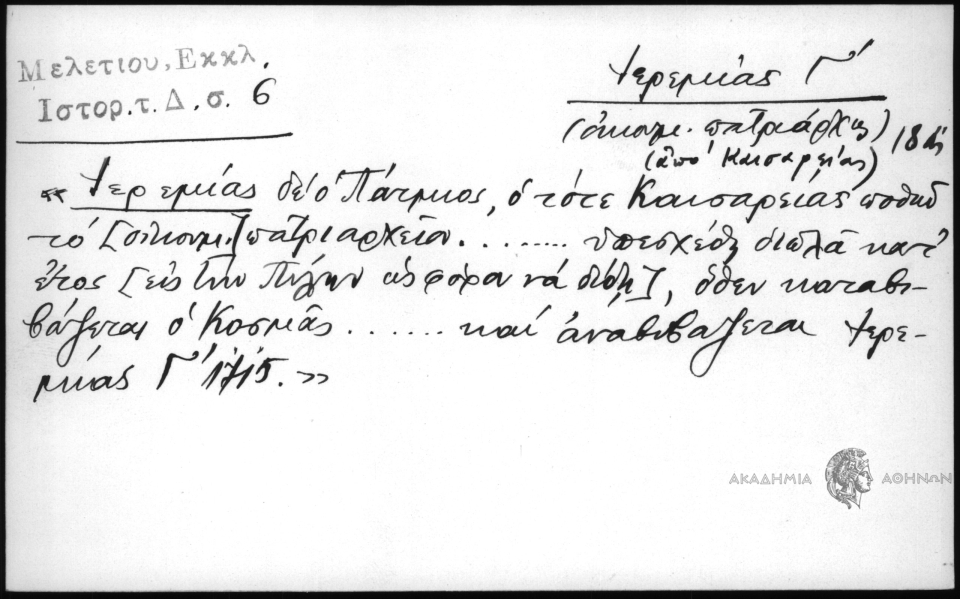 Μελετιου, Εκκλ.
Ιστορ. τ. Δ. σ. 6
Ἱερεμίας Γ΄
(οἰκουμ. πατριάρχης) 18 αἰ
(ἀπό Καισαρείας)
« Ἱερεμίας δέ ὁ Πάτμιος, ὁ τότε Καισαρείας ποθῶν
τό [οἰκουμ.] πατριαρχεῖον ........ ὑπεσχέθη διπλᾶ κατ'
ἔτος [εἰς τήν Πύλην ὡς φόρον νά δίδῃ], ὅθεν καταβι-
βάζεται ὁ Κοσμᾶς ...... καί ἀναβιβάζεται Ἱερε-
μίας Γ΄ 1715. »
ΑΚΑΔΗΜΙΑ ΑΘΗΝΩΝ